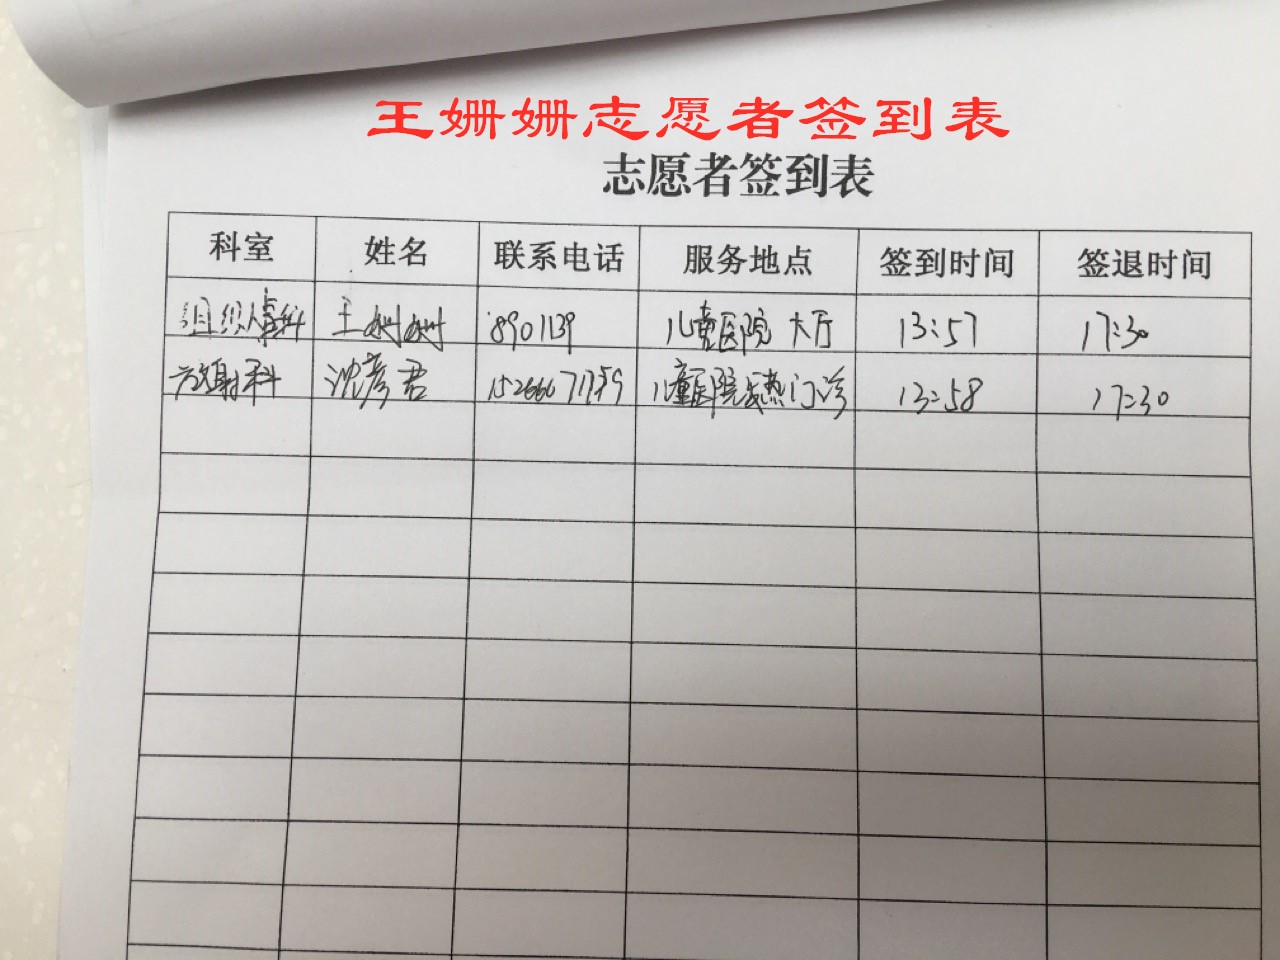 王姗姗志愿者签到表
志愿者签到表
科室 姓名 联系电话 服务地点 签到时间 签退时间
组织人事科 王姗姗 8901139 儿童医院 大厅 13:57 17:30
放射科 沈彦君 儿童医院发热门诊 13:58 17:30